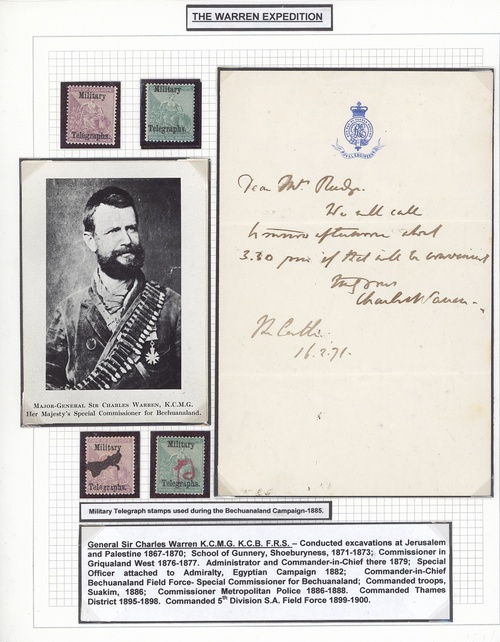 THE WARREN EXPEDITION
Military
Telegraphs.
Military
Telegraphs.
ROYAL ENGINEERS
Dear Mr Rudge.
We will call
tomorrow afternoon about
3.30 pm if that will be convenient
Very yours
Charles Warren
16.2.71.
MAJOR-GENERAL SIR CHARLES WARREN, K.C.M.G.
Her Majesty's Special Commissioner for Bechuanaland.
Military
Telegraphs.
Military
Telegraphs.
Military Telegraph stamps used during the Bechuanaland Campaign-1885.
General Sir Charles Warren K.C.M.G. K.C.B. F.R.S. – Conducted excavations at Jerusalem
and Palestine 1867-1870; School of Gunnery, Shoeburyness, 1871-1873; Commissioner in
Griqualand West 1876-1877. Administrator and Commander-in-Chief there 1879; Special
Officer attached to Admiralty, Egyptian Campaign 1882; Commander-in-Chief
Bechuanaland Field Force- Special Commissioner for Bechuanaland; Commanded troops,
Suakim, 1886; Commissioner Metropolitan Police 1886-1888. Commanded Thames
District 1895-1898. Commanded 5th Division S.A. Field Force 1899-1900.